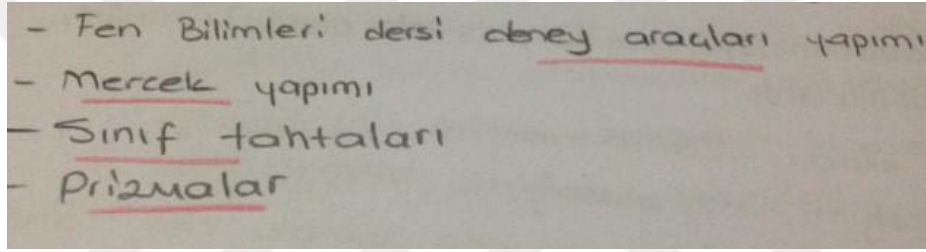 - Fen Bilimleri dersi deney araçları yapımı
- Mercek yapımı
- Sınıf tahtaları
- Prizmalar